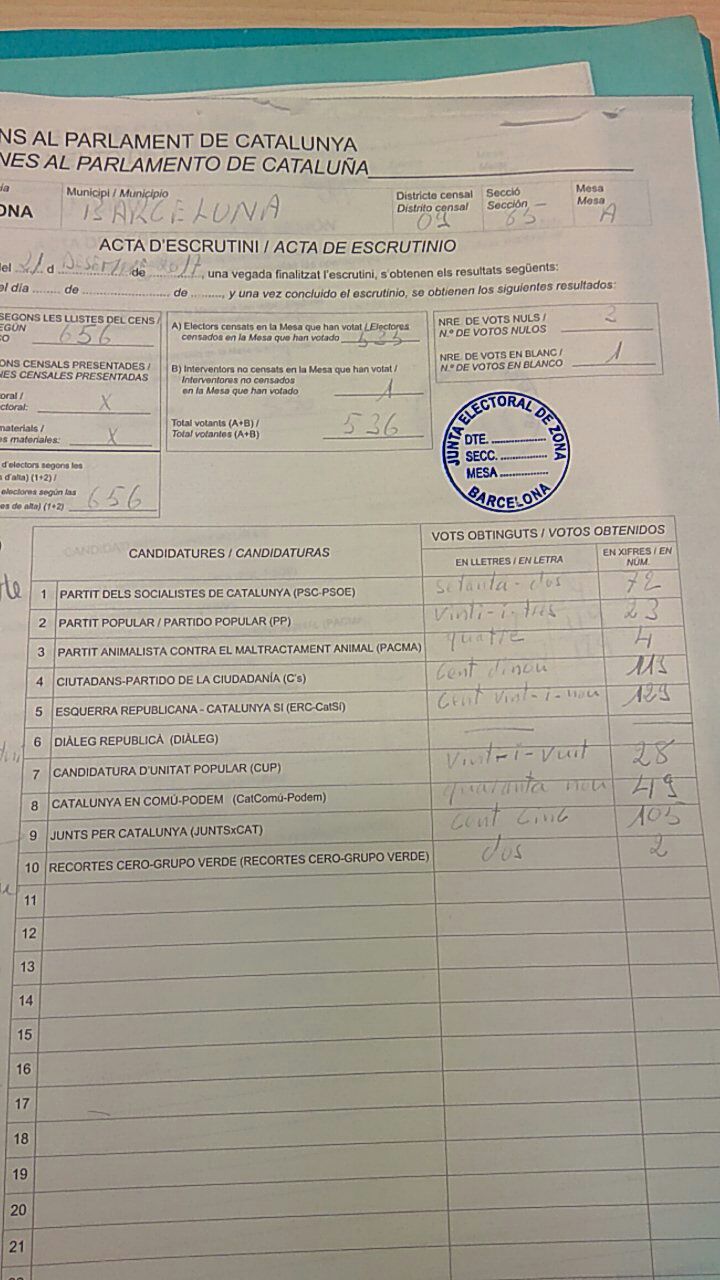 NS AL PARLAMENT DE CATALUNYA
NES AL PARLAMENTO DE CATALUÑA
ia
ONA
Municipi / Municipio
BARCELONA
Districte censal
Distrito censal
09
Secció
Sección
63
Mesa
Mesa
A
ACTA D'ESCRUTINI / ACTA DE ESCRUTINIO
el 21 d Desembre de 2017, una vegada finalitzat l'escrutini, s'obtenen els resultats següents:
el día ........ de ........................ de ........, y una vez concluido el escrutinio, se obtienen los siguientes resultados:
SEGONS LES LLISTES DEL CENS /
EGÚN
O 656
ONS CENSALS PRESENTADES /
NES CENSALES PRESENTADAS
oral /
ctoral: X
materials /
s materiales: X
d'electors segons les
s d'alta) (1+2) /
electores según las
es de alta) (1+2) 656
A) Electors censats en la Mesa que han votat / Electores
censados en la Mesa que han votado 535
B) Interventors no censats en la Mesa que han votat /
Interventores no censados
en la Mesa que han votado 1
Total votants (A+B) /
Total votantes (A+B) 536
NRE. DE VOTS NULS /
N.º DE VOTOS NULOS
NRE. DE VOTS EN BLANC / 1
N.º DE VOTOS EN BLANCO
JUNTA ELECTORAL DE ZONA
DTE. ................
SECC. ..............
MESA ..............
BARCELONA
CANDIDATURES / CANDIDATURAS
VOTS OBTINGUTS / VOTOS OBTENIDOS
EN LLETRES / EN LETRA
EN XIFRES / EN NÚM.
1 PARTIT DELS SOCIALISTES DE CATALUNYA (PSC-PSOE) setanta-dos 72
2 PARTIT POPULAR / PARTIDO POPULAR (PP) Vint-i-tres 23
3 PARTIT ANIMALISTA CONTRA EL MALTRACTAMENT ANIMAL (PACMA) quatre 4
4 CIUTADANS-PARTIDO DE LA CIUDADANÍA (C's) Cent dinou 119
5 ESQUERRA REPUBLICANA - CATALUNYA SI (ERC-CatSí) Cent vint-i-nou 129
6 DIÀLEG REPUBLICÀ (DIÀLEG)
7 CANDIDATURA D'UNITAT POPULAR (CUP) Vint-i-vuit 28
8 CATALUNYA EN COMÚ-PODEM (CatComú-Podem) quaranta nou 49
9 JUNTS PER CATALUNYA (JUNTSxCAT) Cent Cinc 105
10 RECORTES CERO-GRUPO VERDE (RECORTES CERO-GRUPO VERDE) dos 2
11
12
13
14
15
16
17
18
19
20
21